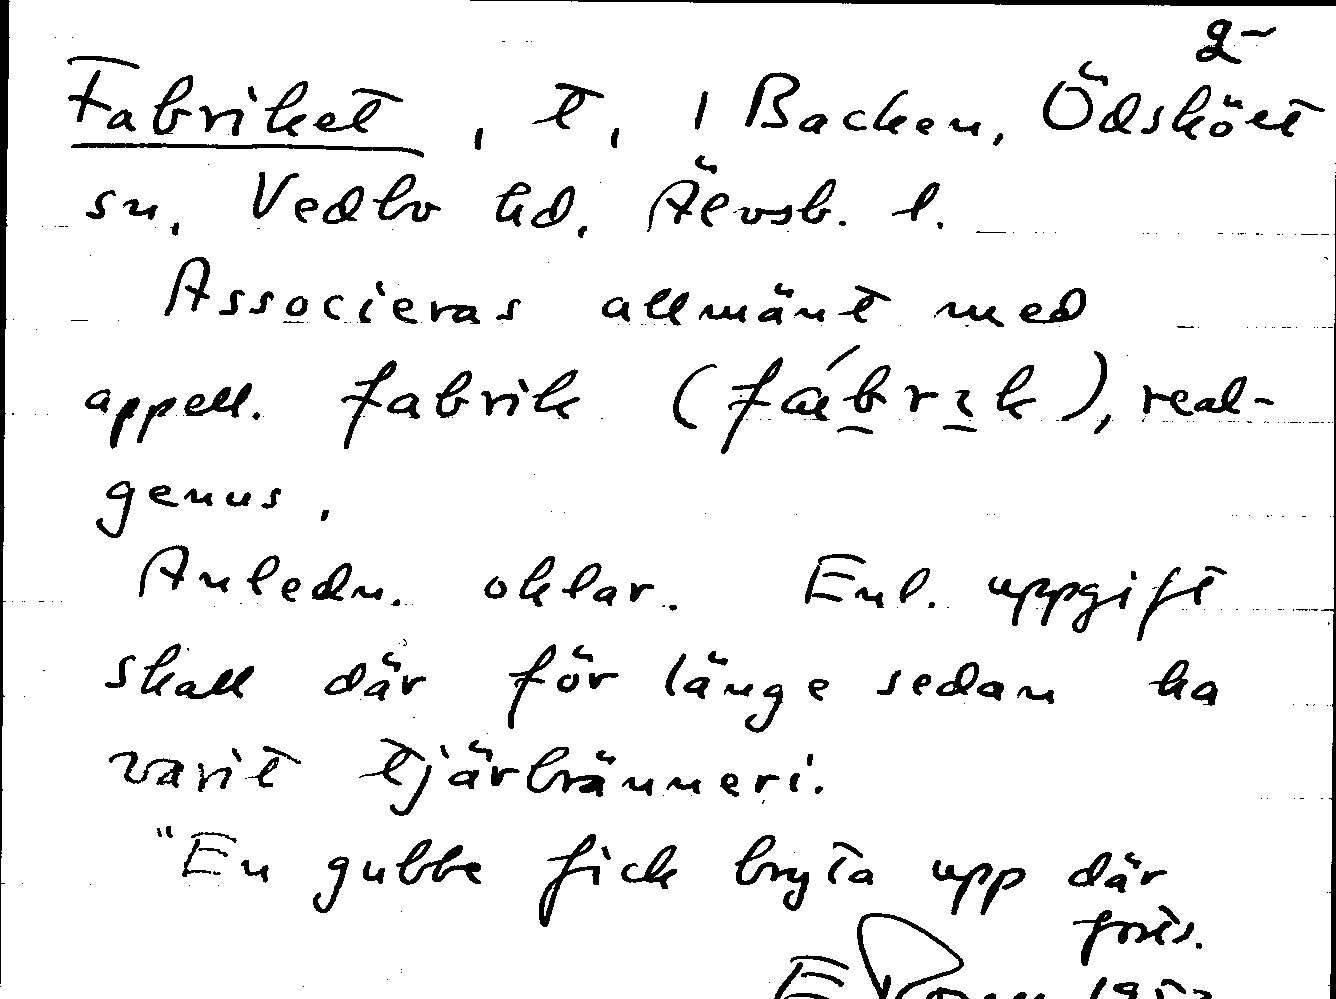 2~
Fabriket, t, 1 Backen, Ödskölt
sn, Vedbo hd, Älvsb. l.
Associeras allmänt med
appell. fabrik (fábrɩk), real-
genus.
Anledn. oklar. Enl. uppgift
skall där för länge sedan ha
varit tjärbränneri.
"En gubbe fick bryta upp där
forts.